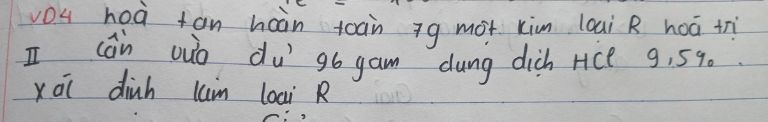 VD4 hoà tan hoàn toàn 7g một kim loại R hoá trị
II cần vừa dư 96 gam dung dịch HCl 9,5%.
xác định kim loại R